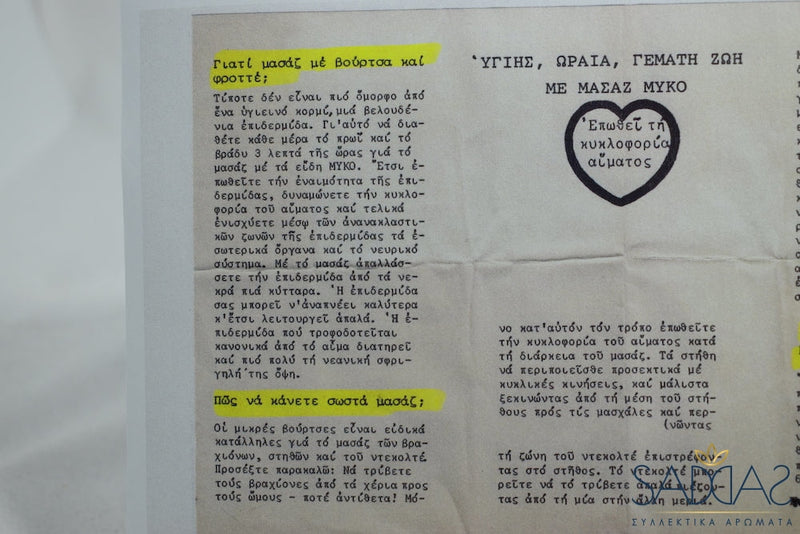 Γιατί μασάζ μέ βούρτσα καί
φροττέ;
Τίποτε δέν εἶναι πιό ὄμορφο ἀπό
ἕνα ὑγιεινό κορμί, μιά βελουδέ-
νια ἐπιδερμίδα. Γι'αὐτό νά δια-
θέτε κάθε μέρα τό πρωΐ καί τό
βράδυ 3 λεπτά τῆς ὥρας γιά τό
μασάζ μέ τά εἴδη ΜΥΚΟ. Ἔτσι ἐ-
πωθεῖτε τήν ἐναιμότητα τῆς ἐπι-
δερμίδας, δυναμώνετε τήν κυκλο-
φορία τοῦ αἵματος καί τελικά
ἐνισχύετε μέσῳ τῶν ἀνανακλαστι-
κῶν ζωνῶν τῆς ἐπιδερμίδας τά ἐ-
σωτερικά ὄργανα καί τό νευρικό
σύστημα. Μέ τό μασάζ ἀπαλλάσ-
σετε τήν ἐπιδερμίδα ἀπό τά νε-
κρά πιά κύτταρα. Ἡ ἐπιδερμίδα
σας μπορεῖ ν'ἀναπνέει καλύτερα
κ'ἔτσι λειτουργεῖ ἁπαλά. Ἡ ἐ-
πιδερμίδα πού τροφοδοτεῖται
κανονικά ἀπό τό αἷμα διατηρεῖ
καί πιό πολύ τή νεανική σφρι-
γηλή της ὄψη.
Πῶς νά κάνετε σωστά μασάζ;
Οἱ μικρές βούρτσες εἶναι εἰδικά
κατάλληλες γιά τό μασάζ τῶν βρα-
χιόνων, στηθῶν καί τοῦ ντεκολτέ.
Προσέξτε παρακαλῶ: Νά τρίβετε
τούς βραχίονες ἀπό τά χέρια πρός
τούς ὤμους - ποτέ ἀντίθετα! Μό-
ὙΓΙΗΣ, ΩΡΑΙΑ, ΓΕΜΑΤΗ ΖΩΗ
ΜΕ ΜΑΣΑΖ ΜΥΚΟ
Ἐπωθεῖ τή
κυκλοφορία
αἵματος
νο κατ'αὐτόν τόν τρόπο ἐπωθεῖτε
τήν κυκλοφορία τοῦ αἵματος κατά
τή διάρκεια τοῦ μασάζ. Τά στήθη
νά περιποιεῖσθε προσεκτικά μέ
κυκλικές κινήσεις, καί μάλιστα
ξεκινώντας ἀπό τή μέση τοῦ στή-
θους πρός τίς μασχάλες καί περ-
(νῶντας
τή ζώνη τοῦ ντεκολτέ ἐπιστρέφον-
τας στό στῆθος. Τό ντεκολτέ μπο-
ρεῖτε νά τό τρίβετε ἁπαλά πιέζον-
τας ἀπό τή μία στήν ἄλλη μεριά.
SADDAS
ΣΥΛΛΕΚΤΙΚΑ ΑΡΩΜΑΤΑ